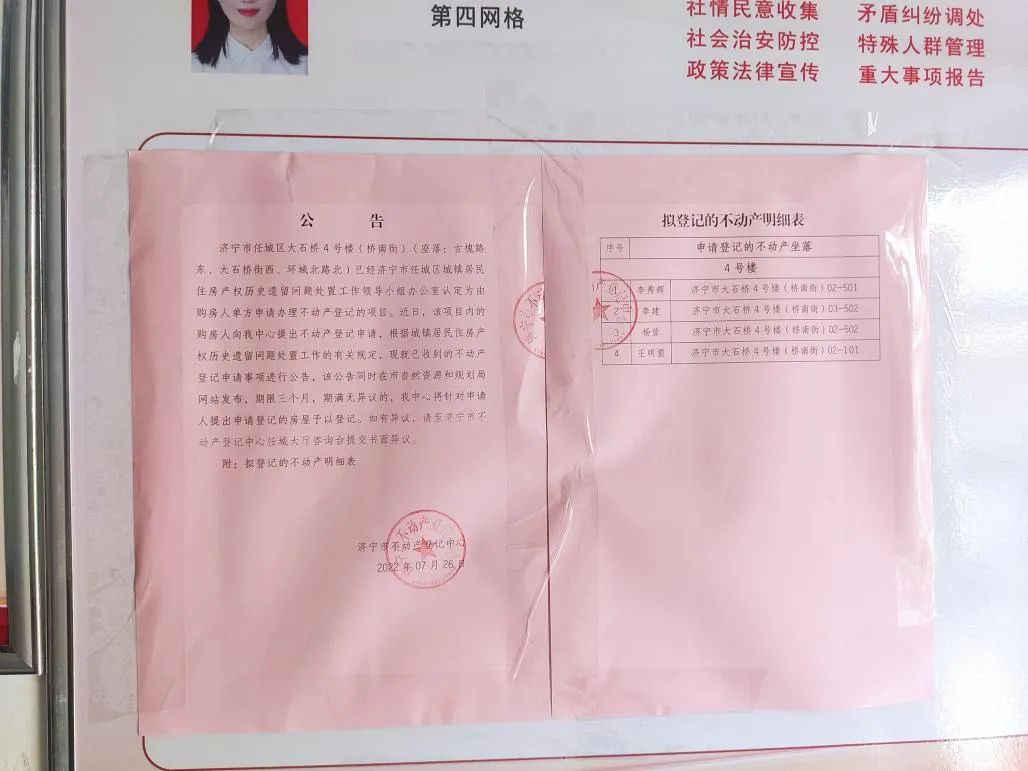 第四网格
社情民意收集 矛盾纠纷调处
社会治安防控 特殊人群管理
政策法律宣传 重大事项报告
公 告
济宁市任城区大石桥4号楼（桥南街）（座落：古槐路
东、大石桥街西、环城北路北）已经济宁市任城区城镇居民
住房产权历史遗留问题处置工作领导小组办公室认定为由
购房人单方申请办理不动产登记的项目。近日，该项目内的
购房人向我中心提出不动产登记申请，根据城镇居民住房产
权历史遗留问题处置工作的有关规定，现就已收到的不动产
登记申请事项进行公告，该公告同时在市自然资源和规划局
网站发布，期限三个月，期满无异议的，我中心将针对申请
人提出申请登记的房屋予以登记。如有异议，请至济宁市不
动产登记中心任城大厅咨询台提交书面异议。
附：拟登记的不动产明细表
济宁市不动产登记中心
2022年07月26日
拟登记的不动产明细表
序号 申请登记的不动产坐落
4号楼
李秀辉 济宁市大石桥4号楼（桥南街）02-501
2 李建 济宁市大石桥4号楼（桥南街）03-502
3 杨莹 济宁市大石桥4号楼（桥南街）02-502
4 王明 济宁市大石桥4号楼（桥南街）02-101